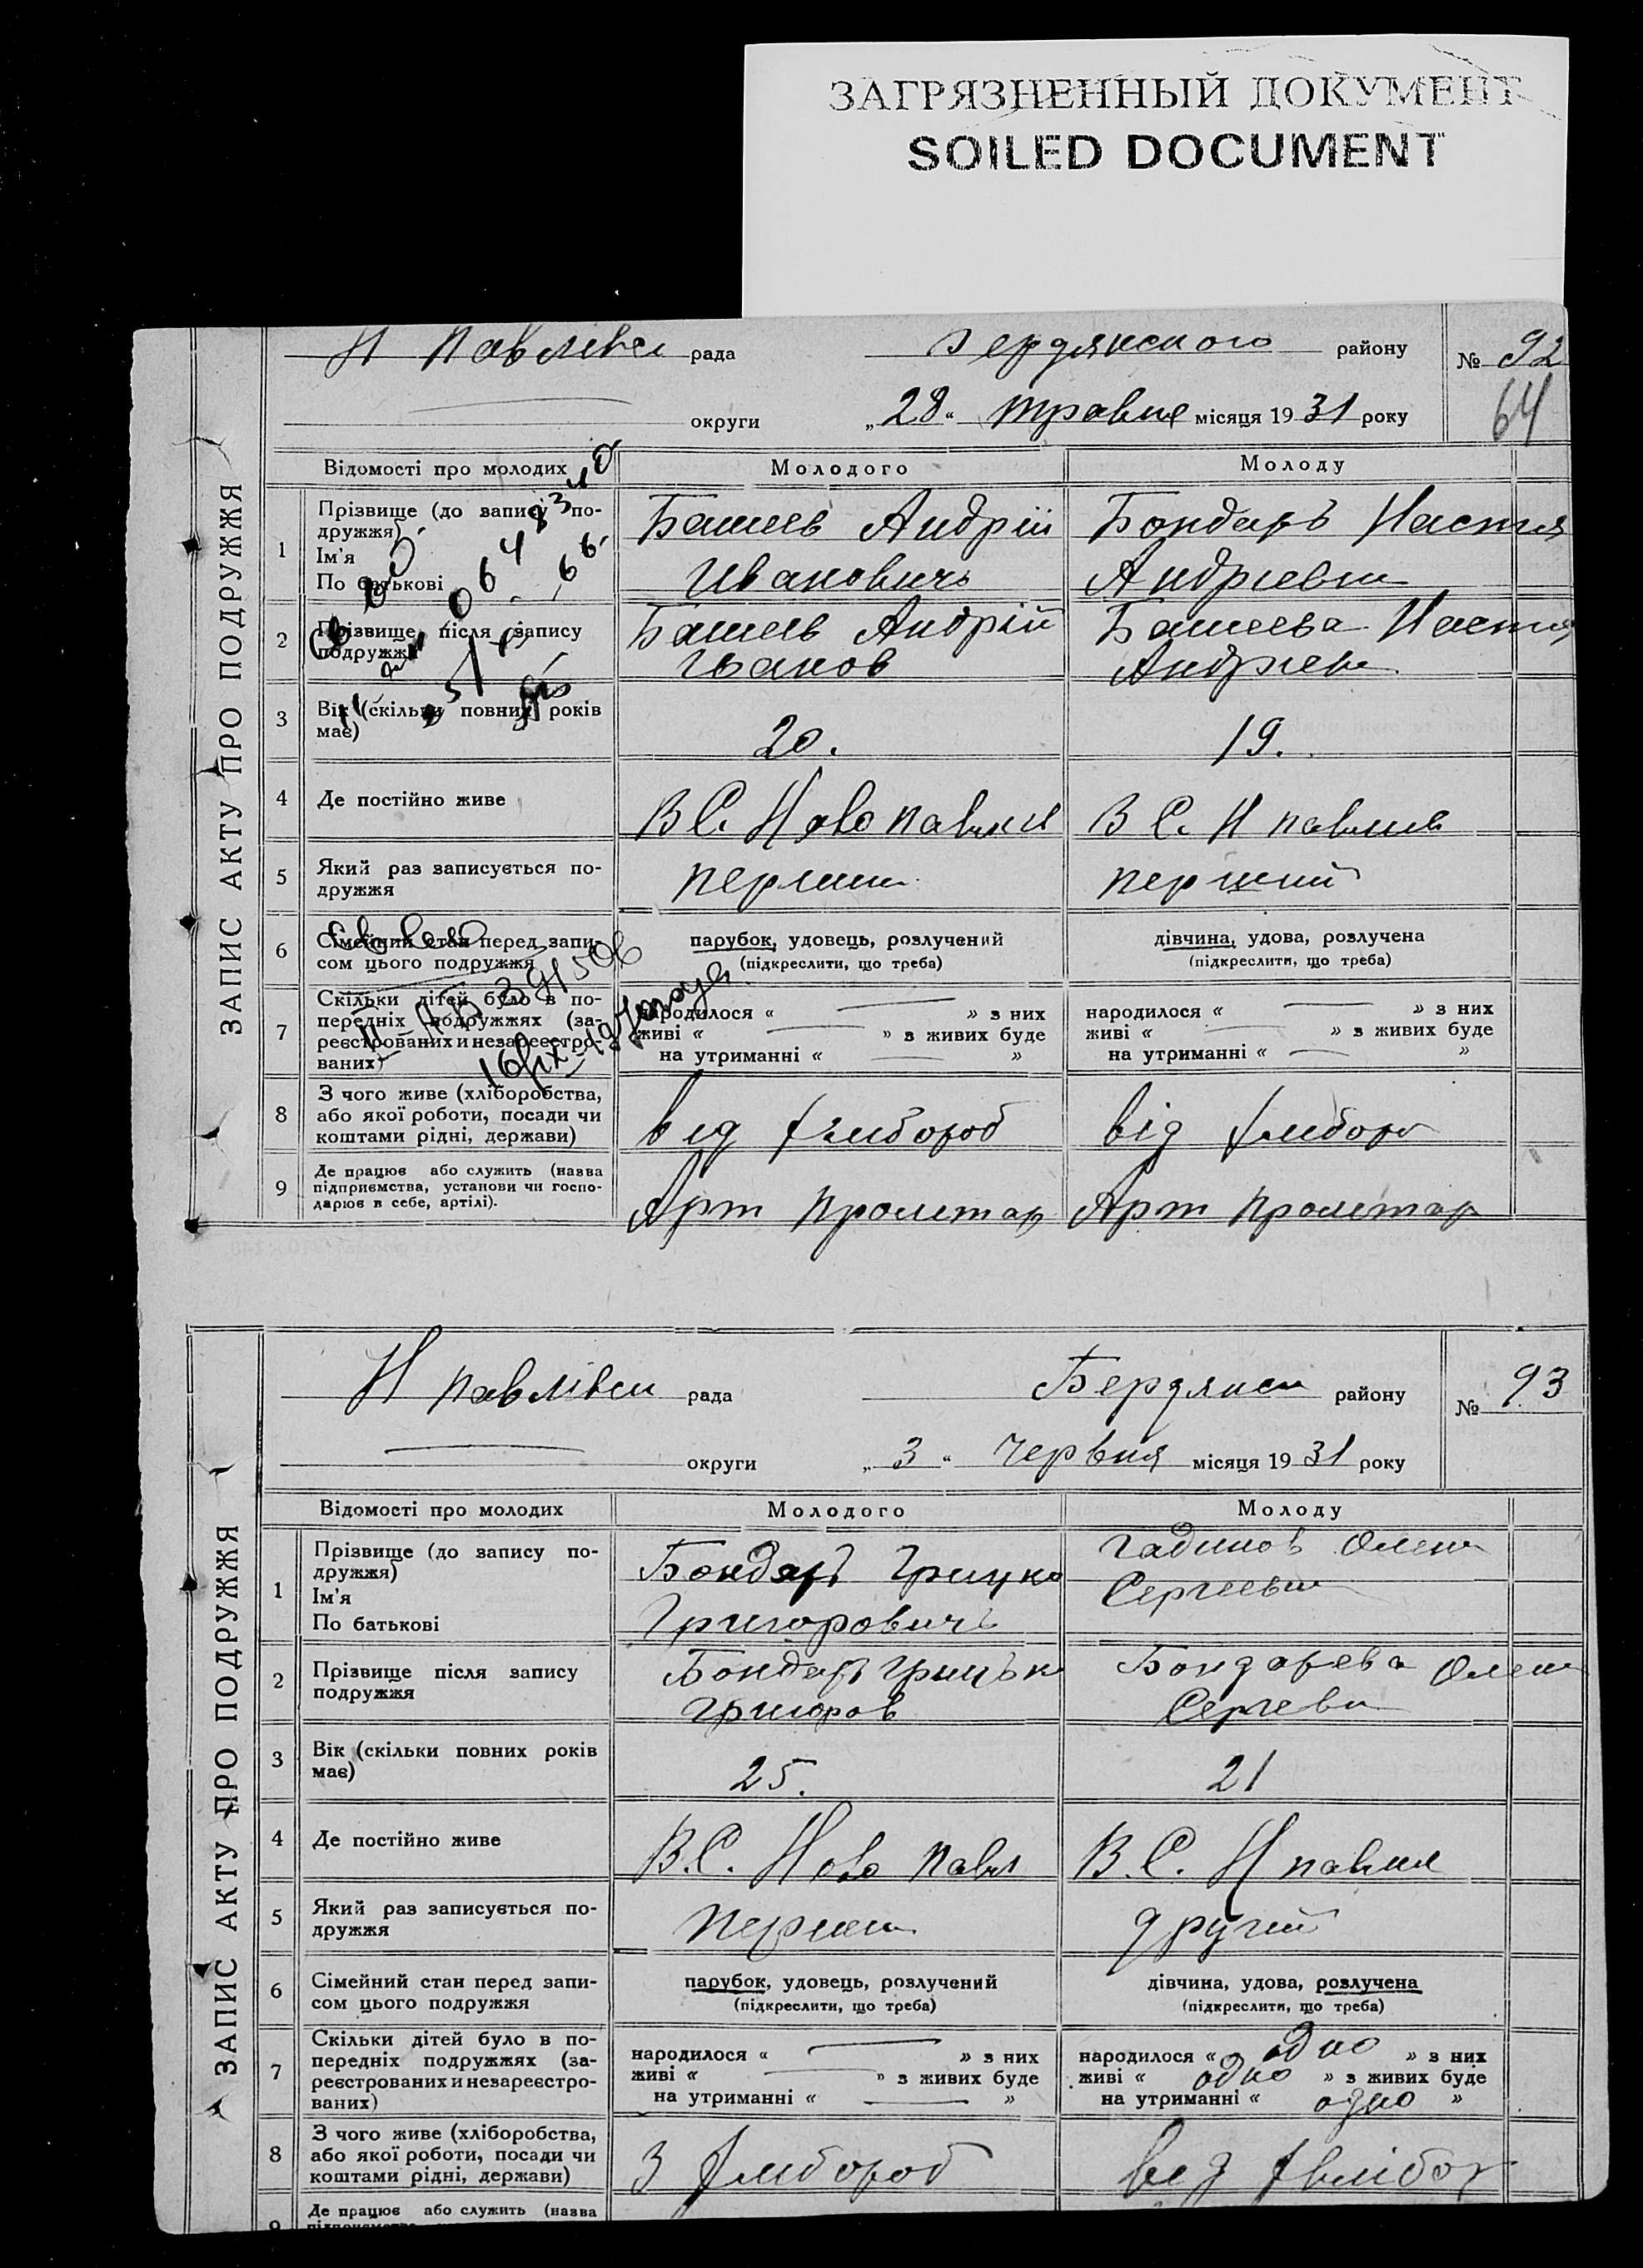 ЗАГРЯЗНЕННЫЙ ДОКУМЕНТ
SOILED DOCUMENT
Н Павлівси рада Бердянского району № 92
округи „28“ травня місяця 1931 року 64
ЗАПИС АКТУ ПРО ПОДРУЖЖЯ
Відомості про молодих Молодого Молоду
1 Прізвище (до запису подружжя)
Ім'я
По батькові
Башеев Андрій
Ивановичь
Бондарь Настя
Андріевна
2 Прізвище після запису
подружжя
Башеев Андрій
Іванов
Башеева Настя
Андріев
3 Вік (скільки повних років
має)
20. 19.
4 Де постійно живе
В С. Ново павлив В С. Н павлив
5 Який раз записується по-
дружжя
перший перший
6 Сімейний стан перед запи-
сом цього подружжя
парубок, удовець, розлучений
(підкреслити, що треба)
дівчина, удова, розлучена
(підкреслити, що треба)
7 Скільки дітей було в по-
передніх подружжях (за-
реєстрованих и незареєстро-
ваних)
народилося « » з них
живі « » з живих буде
на утриманні « »
народилося « » з них
живі « » з живих буде
на утриманні « »
8 З чого живе (хліборобства,
або якої роботи, посади чи
коштами рідні, держави)
від хлибороб від хлибор
9 Де працює або служить (назва
підприємства, установи чи госпо-
дарює в себе, артілі).
Арт пролетар Арт пролетар
Н павлівси рада Бердянси району № 93
округи „3“ Червня місяця 1931 року
ЗАПИС АКТУ ПРО ПОДРУЖЖЯ
Відомості про молодих Молодого Молоду
1 Прізвище (до запису по-
дружжя)
Ім'я
По батькові
Бондарь Грицко
Григоровичь
Олена
Сергеевна
2 Прізвище після запису
подружжя
Бондарь Грицько
Григоров
Бондарева Олена
Сергеевн
3 Вік (скільки повних років
має)
25. 21
4 Де постійно живе
В.С. Ново Павл В.С. Н павлив
5 Який раз записується по-
дружжя
перший другий
6 Сімейний стан перед запи-
сом цього подружжя
парубок, удовець, розлучений
(підкреслити, що треба)
дівчина, удова, розлучена
(підкреслити, що треба)
7 Скільки дітей було в по-
передніх подружжях (за-
реєстрованих и незареєстро-
ваних)
народилося « » з них
живі « » з живих буде
на утриманні « »
народилося « одно » з них
живі « одно » з живих буде
на утриманні « одно »
8 З чого живе (хліборобства,
або якої роботи, посади чи
коштами рідні, держави)
З хлибороб вед хлібор
Де працює або служить (назва